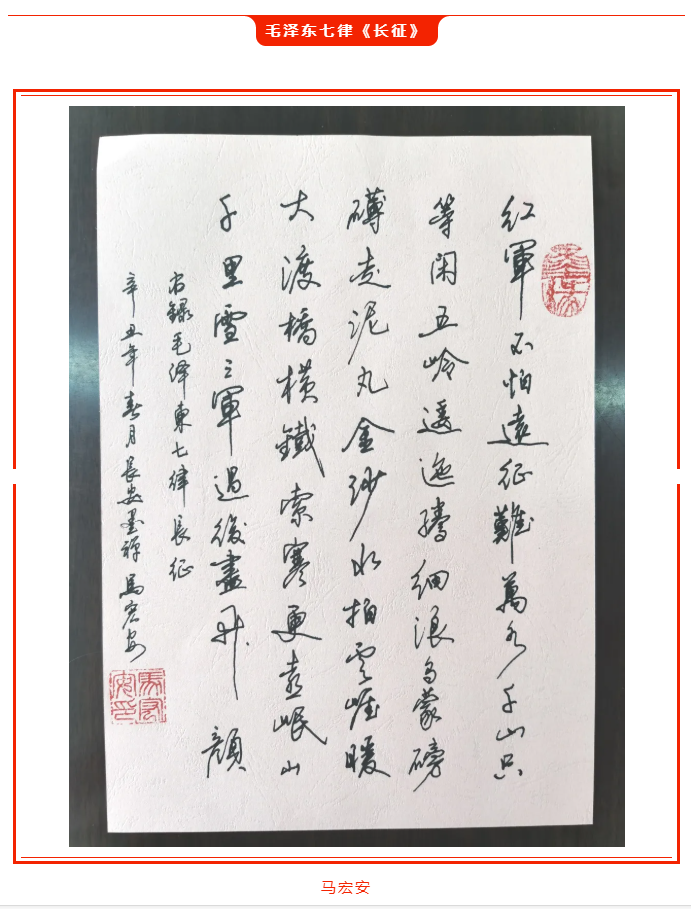 毛泽东七律《长征》
红軍不怕遠征難萬水千山只
等闲五岭逶迤腾细浪乌蒙磅
礴走泥丸金沙水拍雲崖暖
大渡橋横鐵索寒更喜岷山
千里雪三軍過後盡开顔
右録毛泽東七律長征
辛丑年春月長安墨禅馬宏安
馬宏安印
马宏安